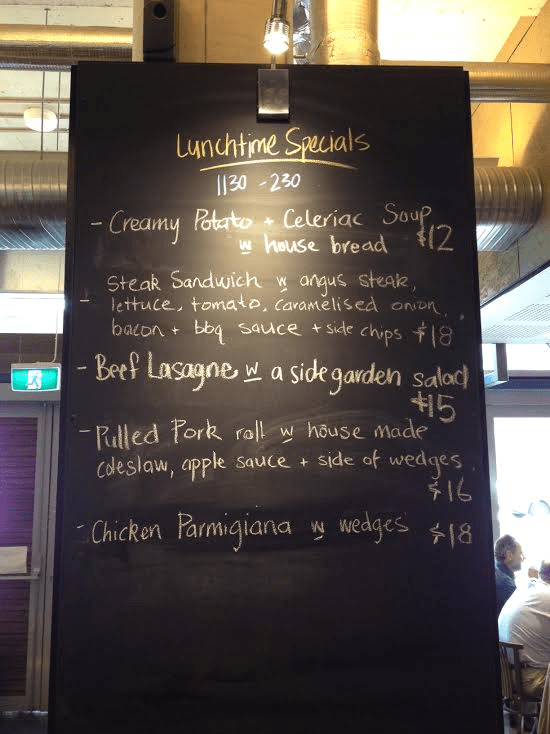 Lunchtime Specials
1130 - 230
- Creamy Potato + Celeriac Soup
w house bread $12
Steak Sandwich w angus steak,
- lettuce, tomato, caramelised onion,
bacon + bbq sauce + side chips $18
- Beef Lasagne w a side garden salad
$15
- Pulled Pork roll w house made
coleslaw, apple sauce + side of wedges.
$16
- Chicken Parmigiana w wedges $18